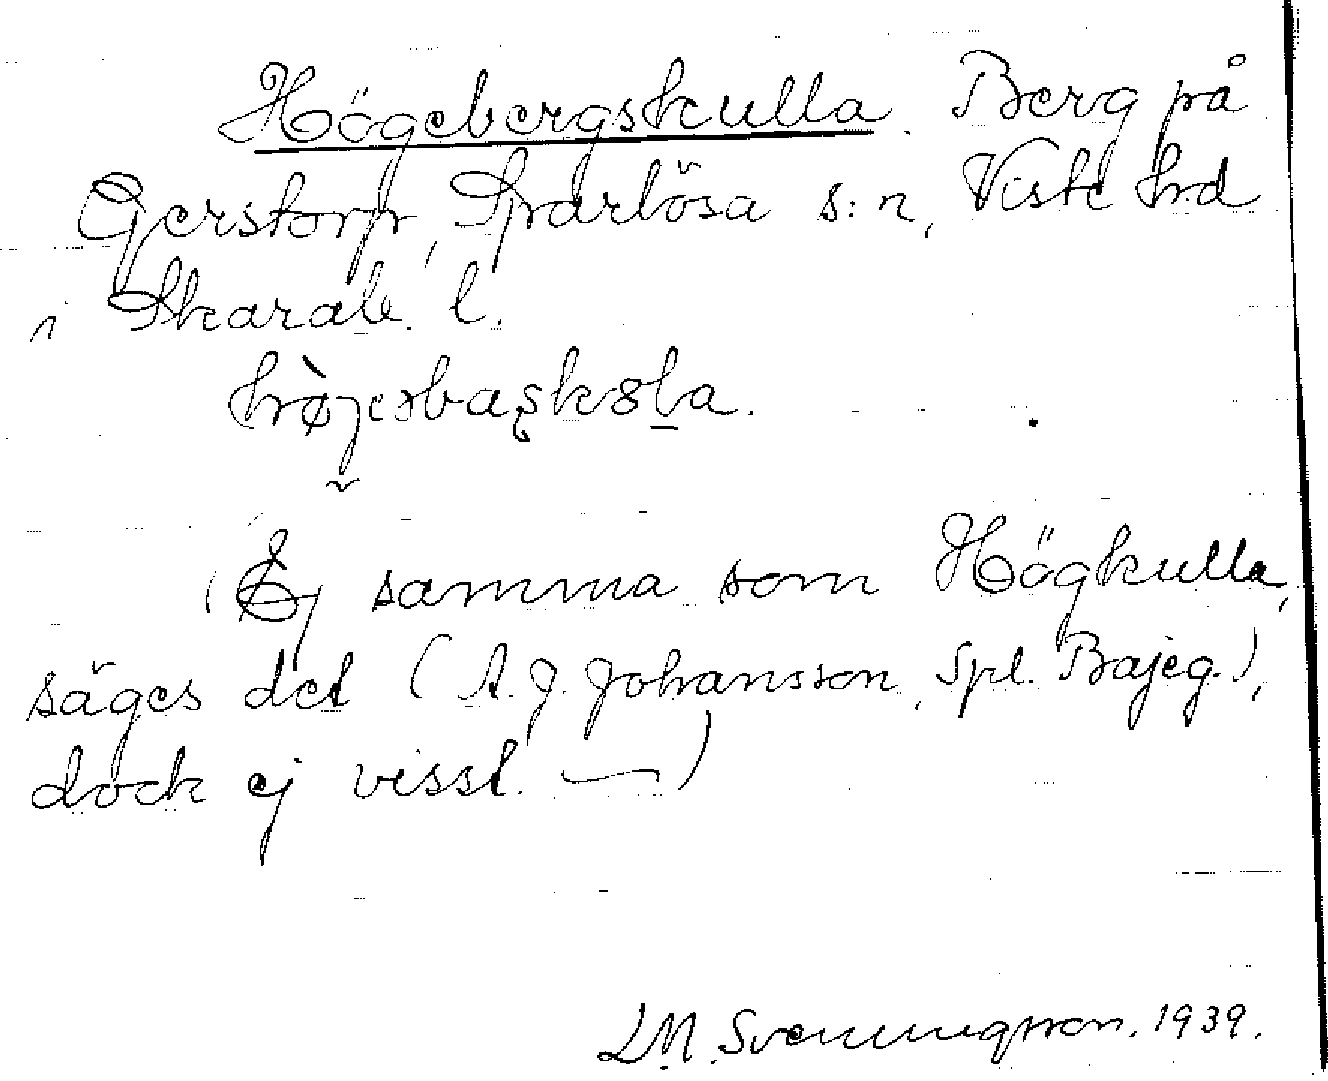 Högebergskulla. Berg på
Gerstorp, Sparlösa s:n, Viste hd
i Skarab. l.
hø̀jesbaskola.
(Ej samma som Högkulla,
säges det (A. J. Johansson, Spl. Bajeg.),
dock ej visst. —)
LM. Svenungsson. 1939.